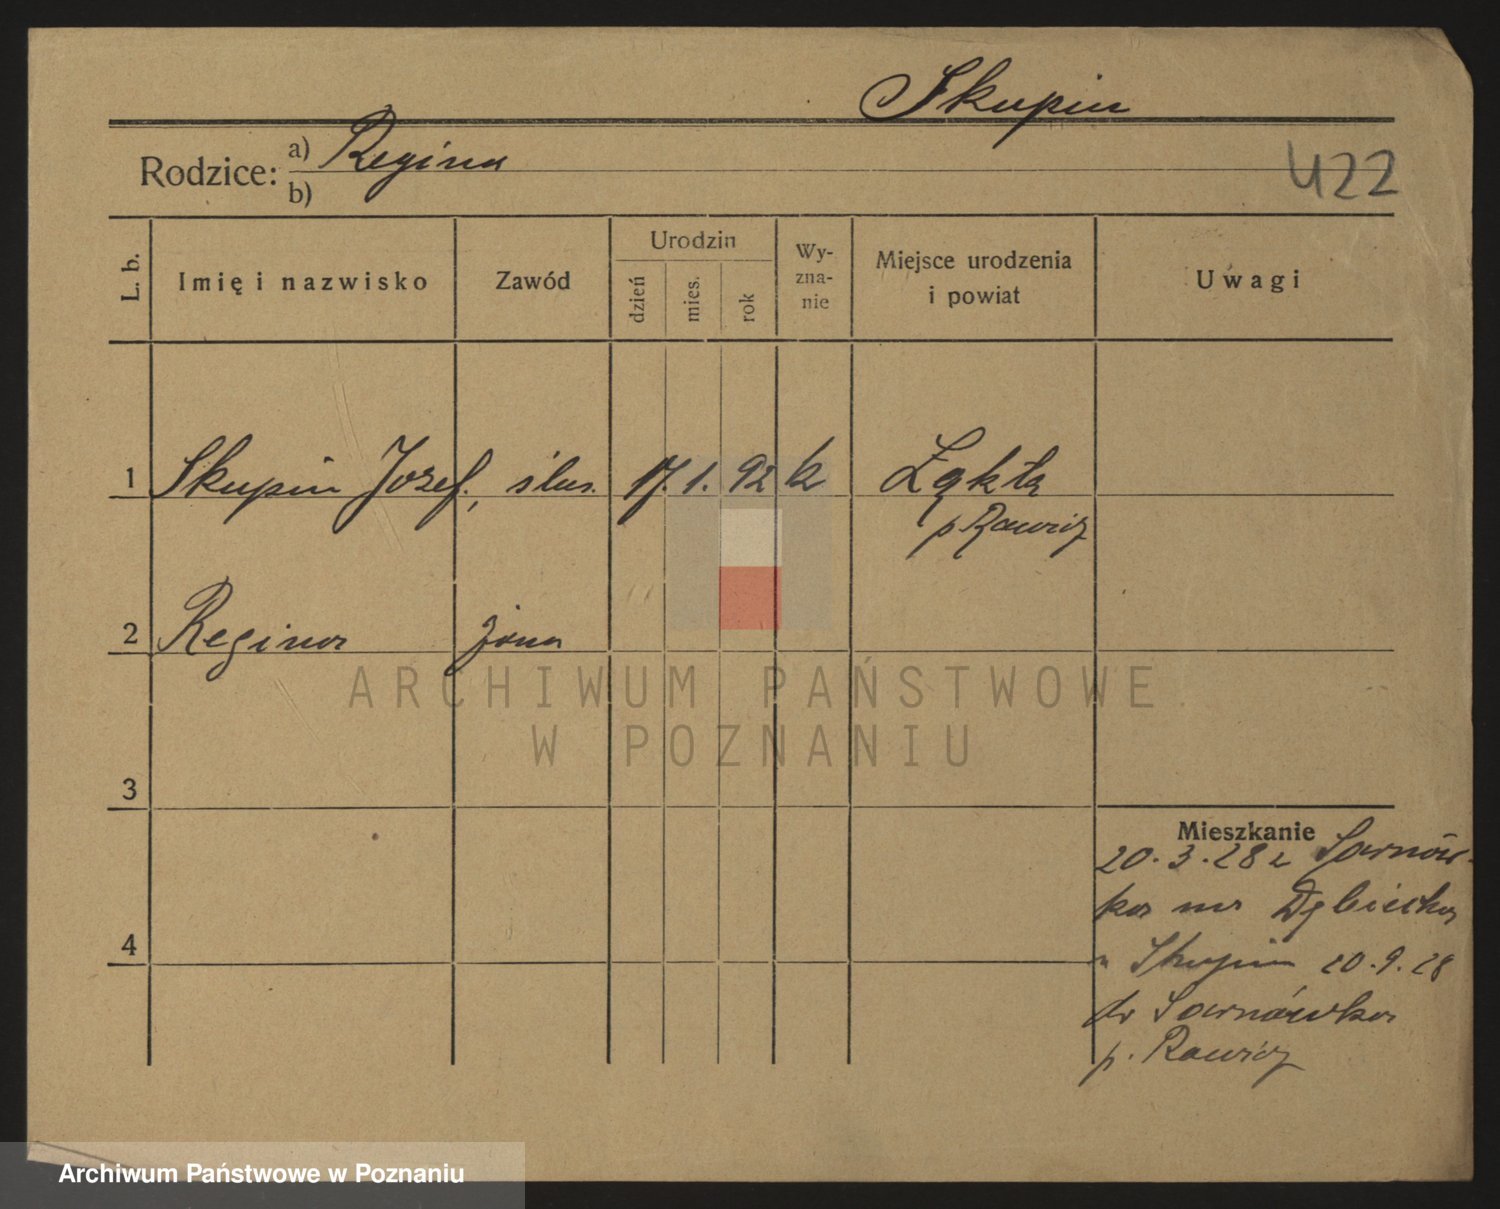 Skupin
Rodzice: a) Regina
b)
422
L. b. Imię i nazwisko Zawód Urodzin dzień mies. rok Wy-zna-nie Miejsce urodzenia i powiat Uwagi
1 Skupin Jozef, ślus. 17. 1. 92 k Łąkta
p Rawicz
2 Regina żona
3
Mieszkanie
20.3.28 z Sarnów-
ka na Dębiecka
Skupin 20.9.28
4
do Sarnówka
p. Rawicz
ARCHIWUM PAŃSTWOWE
W POZNANIU
Archiwum Państwowe w Poznaniu